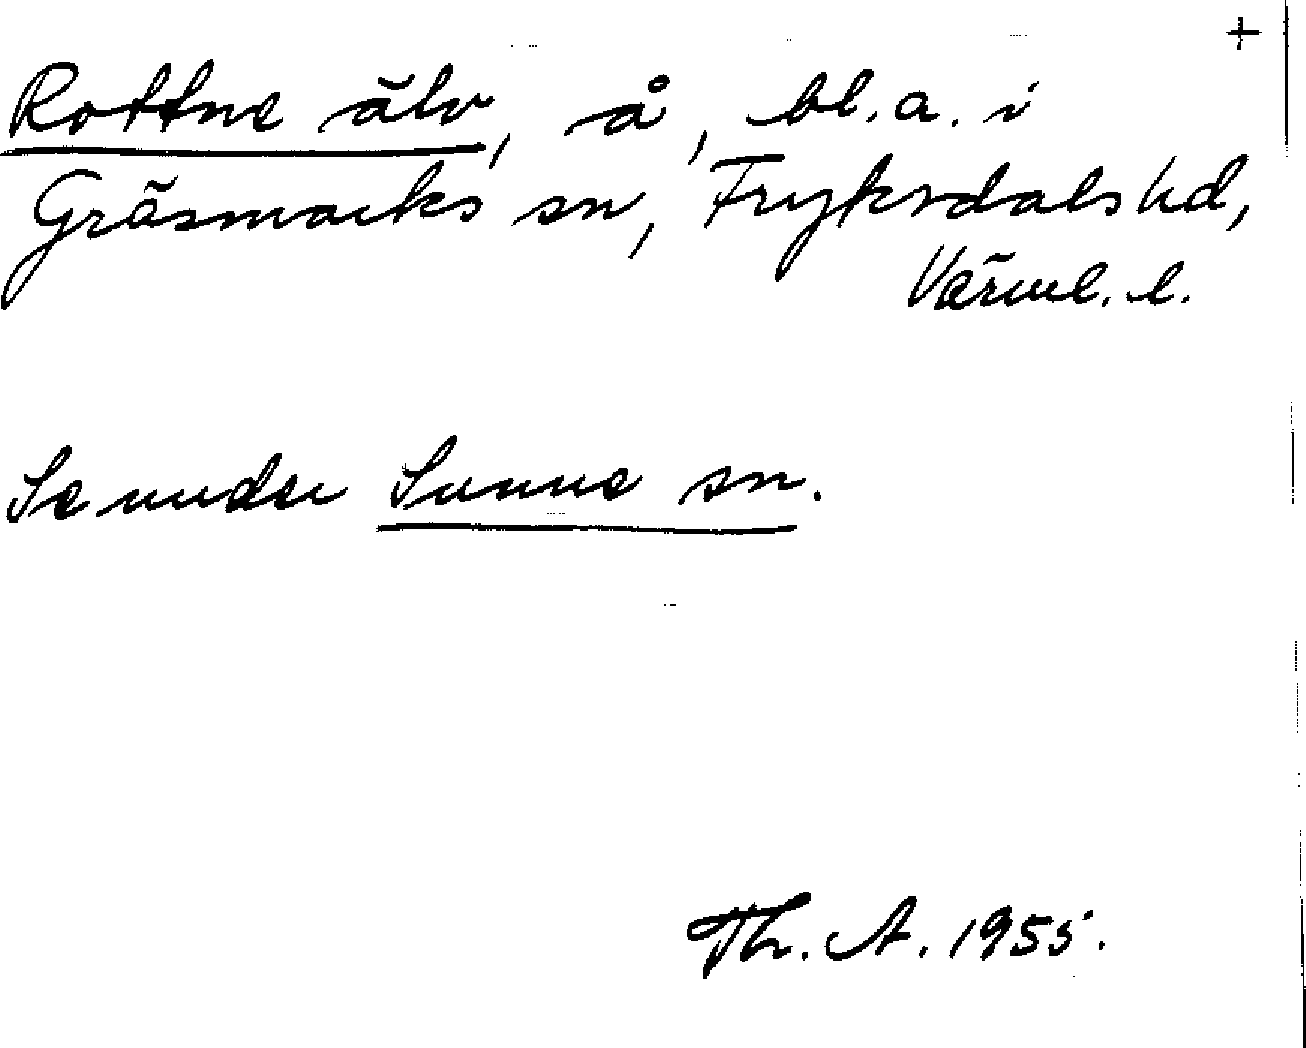 +
Rottne älv, å, bl.a. i
Gräsmarks sn, Fryksdals hd,
Värml. l.
Se under Sunne sn.
Th. A. 1955.